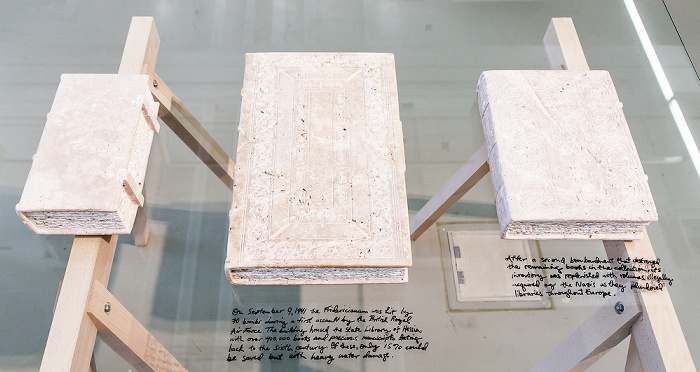 On September 9, 1941 the Fridericianum was hit by
40 bombs during a first assault by the British Royal
Air Force. The building housed the State Library of Hessia
with over 400,000 books and precious manuscripts dating
back to the sixth century. Of these, only 15% could
be saved but with heavy water damage.
After a second bombardment that destroyed
the remaining books in the collection its
inventory was replenished with volumes illegally
acquired by the Nazis as they plundered
libraries throughout Europe.